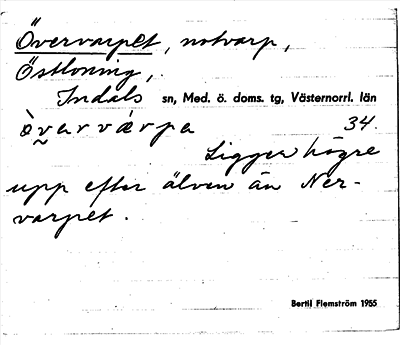 Övervarpet, notvarp,
Östloning,
Indals sn, Med. ö. doms. tg, Västernorrl. län
òv̰arvárpa 34.
Ligger högre
upp efter älven än Ner-
varpet.
Bertil Flemström 1955